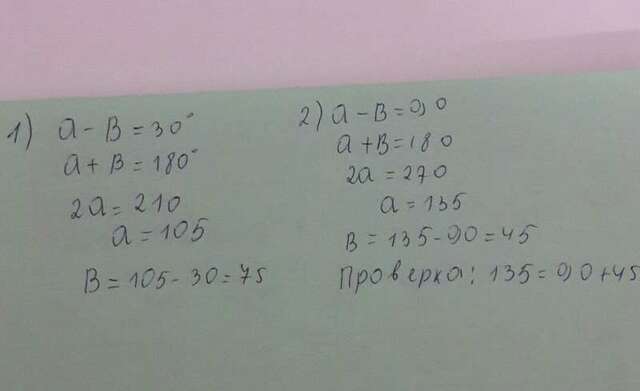 1) a - B = 30°
a + B = 180°
2a = 210
a = 105
B = 105 - 30 = 75
2) a - B = 90
a + B = 180
2a = 270
a = 135
B = 135 - 90 = 45
Проверка: 135 = 90 + 45